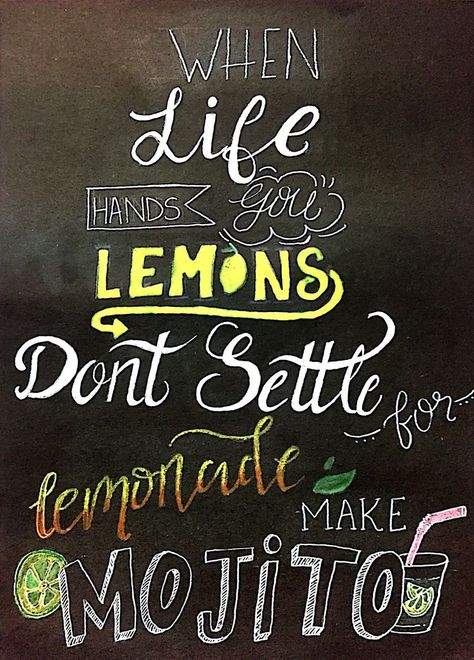 WHEN
Life
HANDS you
LEMONS
Dont Settle
for
lemonade
MAKE
MOJITO